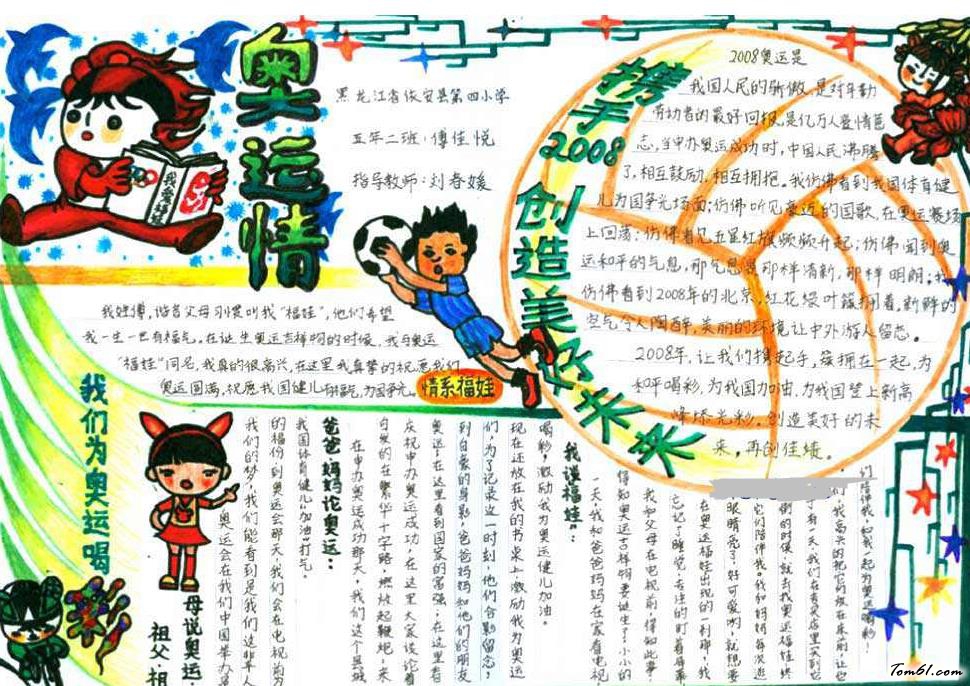 奥运情
我爱
黑龙江省依安县第四小学
五年二班:傅佳悦
指导教师:刘春媛
我姓傅,谐音父母习惯叫我“福娃”,他们希望
我一生一世有福气,在诞生奥运吉祥物的时候,我与奥运
“福娃”同名,我真的很高兴,在这里我真挚的祝愿我们
奥运圆满,祝愿我国健儿有福气,为国争光。
情系福娃
携手2008创造美好未来
2008奥运是
我国人民的骄傲,是对辛勤
劳动者的最好回报,是亿万人爱情笆
志,当申办奥运成功时,中国人民沸腾
了,相互鼓励,相互拥抱。我仿佛看到我国体育健
儿为国争光场面;仿佛听见亲近的国歌,在奥运赛场
上回荡;仿佛看见五星红旗频频升起;仿佛闻到奥
运和平的气息,那气息是那样清新,那样明朗;我
仿佛看到2008年的北京,红花绿叶簇拥着,新鲜的
空气令人陶醉,美丽的环境让中外游人留恋。
2008年,让我们携起手,簇拥在一起,为
和平喝彩,为我国加油,为我国登上新高
峰添光彩。创造美好的未
来,再创佳绩。
我们为奥运喝
们陪伴我,和我一起为奥运喝彩!
们,我高兴的把它们放在床前,让它
了,有一天,我们在
倒的时候,就去找奥运福娃
它们陪伴我。我和妈妈每次逛
眼睛亮了:好可爱哟,就想要
在奥运福娃出现的一刹那,我
忘记了睡觉,专注的盯着屏幕
我和父母在电视前得知此事,
得知奥运吉祥物要诞生了,小小的
一天,我和爸爸妈妈在家看电视,
我说福娃:
喝彩,激励我为奥运健儿加油。
现在还放在我的书桌上激励我为奥运
们,为了记录这一时刻,他们合影留念,
到自豪的身影,爸爸妈妈和他们的朋友
奥运,在这里看到国家的富强,在这里看
庆祝申办奥运成功,在这里大家谈论着
自发的在繁华十字路,燃放起鞭炮,来
在申办奥运成功那天,我们这个县城
爸爸妈妈论奥运:
我国体育健儿“加油”打气。
的福份到奥运会那天,我们会在电视前为
我们的梦,我们能看到是我们这辈人
奥运会在我们中国举办
母说奥运:
祖父、祖
Tom61.com